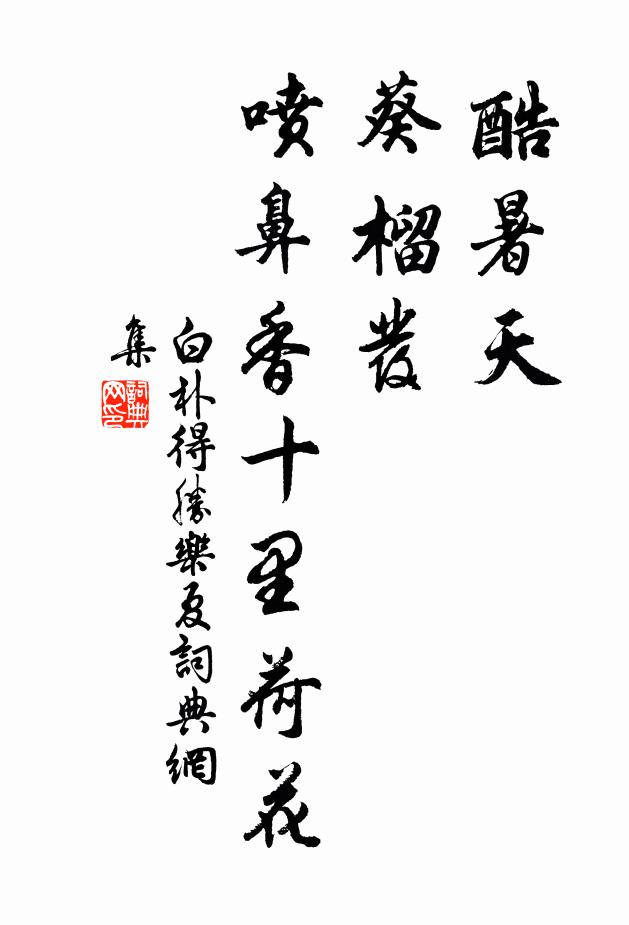 酷暑天
葵榴發
噴鼻香十里荷花
白朴得勝樂夏詞典網
集
詞典
网印